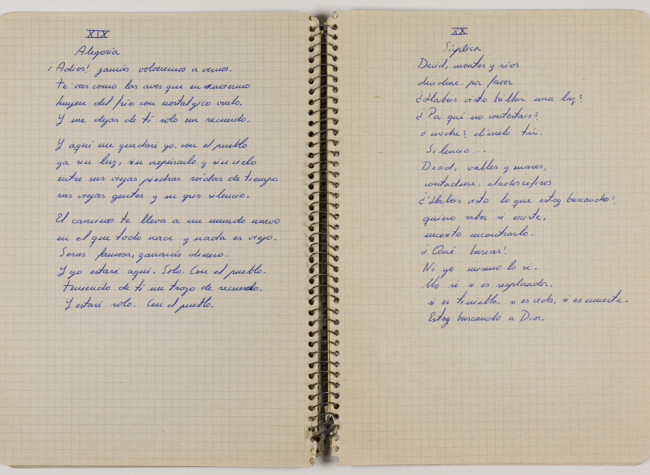 XIX
Alegoría
¡Adios! jamás volveremos a vernos.
Te vas como las aves que en invierno
huyen del frio con nostalgico vuelo.
Y me dejas de ti solo un recuerdo.
Y aqui me quedare yo, con el pueblo
ya sin luz, sin crepúsculo y sin cielo
entre sus viejas piedras roidas de tiempo
sus viejas gentes y su gris silencio.
El camino te lleva a un mundo nuevo
en el que todo nace y nada es viejo.
Seras famosa, ganarás dinero.
Y yo estaré aqui. Solo. Con el pueblo.
Teniendo de ti un trozo de recuerdo.
Y estaré solo. Con el pueblo.
XX
Súplica
Decid, montes y rios
decidme por favor
¿Habeis visto brillar una luz?
¿Por qué no contestais?
¿noche? dimelo tú.
Silencio...
Decid, valles y mares,
contadme, 
¿Habeis visto lo que estoy buscando?
quiero saber si existe,
necesito encontrarlo.
¿Qué buscas?
Ni yo mismo lo sé.
No sé si es resplandor,
si es tiniebla, si es vida, si es muerte.
Estoy buscando a Dios.